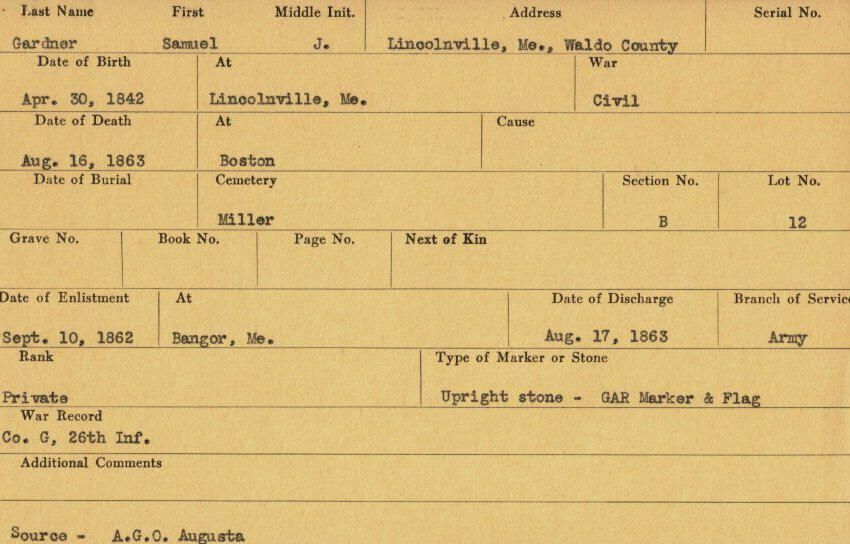 Last Name First Middle Init. Address Serial No.
Gardner Samuel J. Lincolnville, Me., Waldo County
Date of Birth At War
Apr. 30, 1842 Lincolnville, Me. Civil
Date of Death At Cause
Aug. 16, 1863 Boston
Date of Burial Cemetery Section No. Lot No.
Miller B 12
Grave No. Book No. Page No. Next of Kin
Date of Enlistment At Date of Discharge Branch of Servic
Sept. 10, 1862 Bangor, Me. Aug. 17, 1863 Army
Rank Type of Marker or Stone
Private Upright stone - GAR Marker & Flag
War Record
Co. G, 26th Inf.
Additional Comments
Source - A.G.O. Augusta